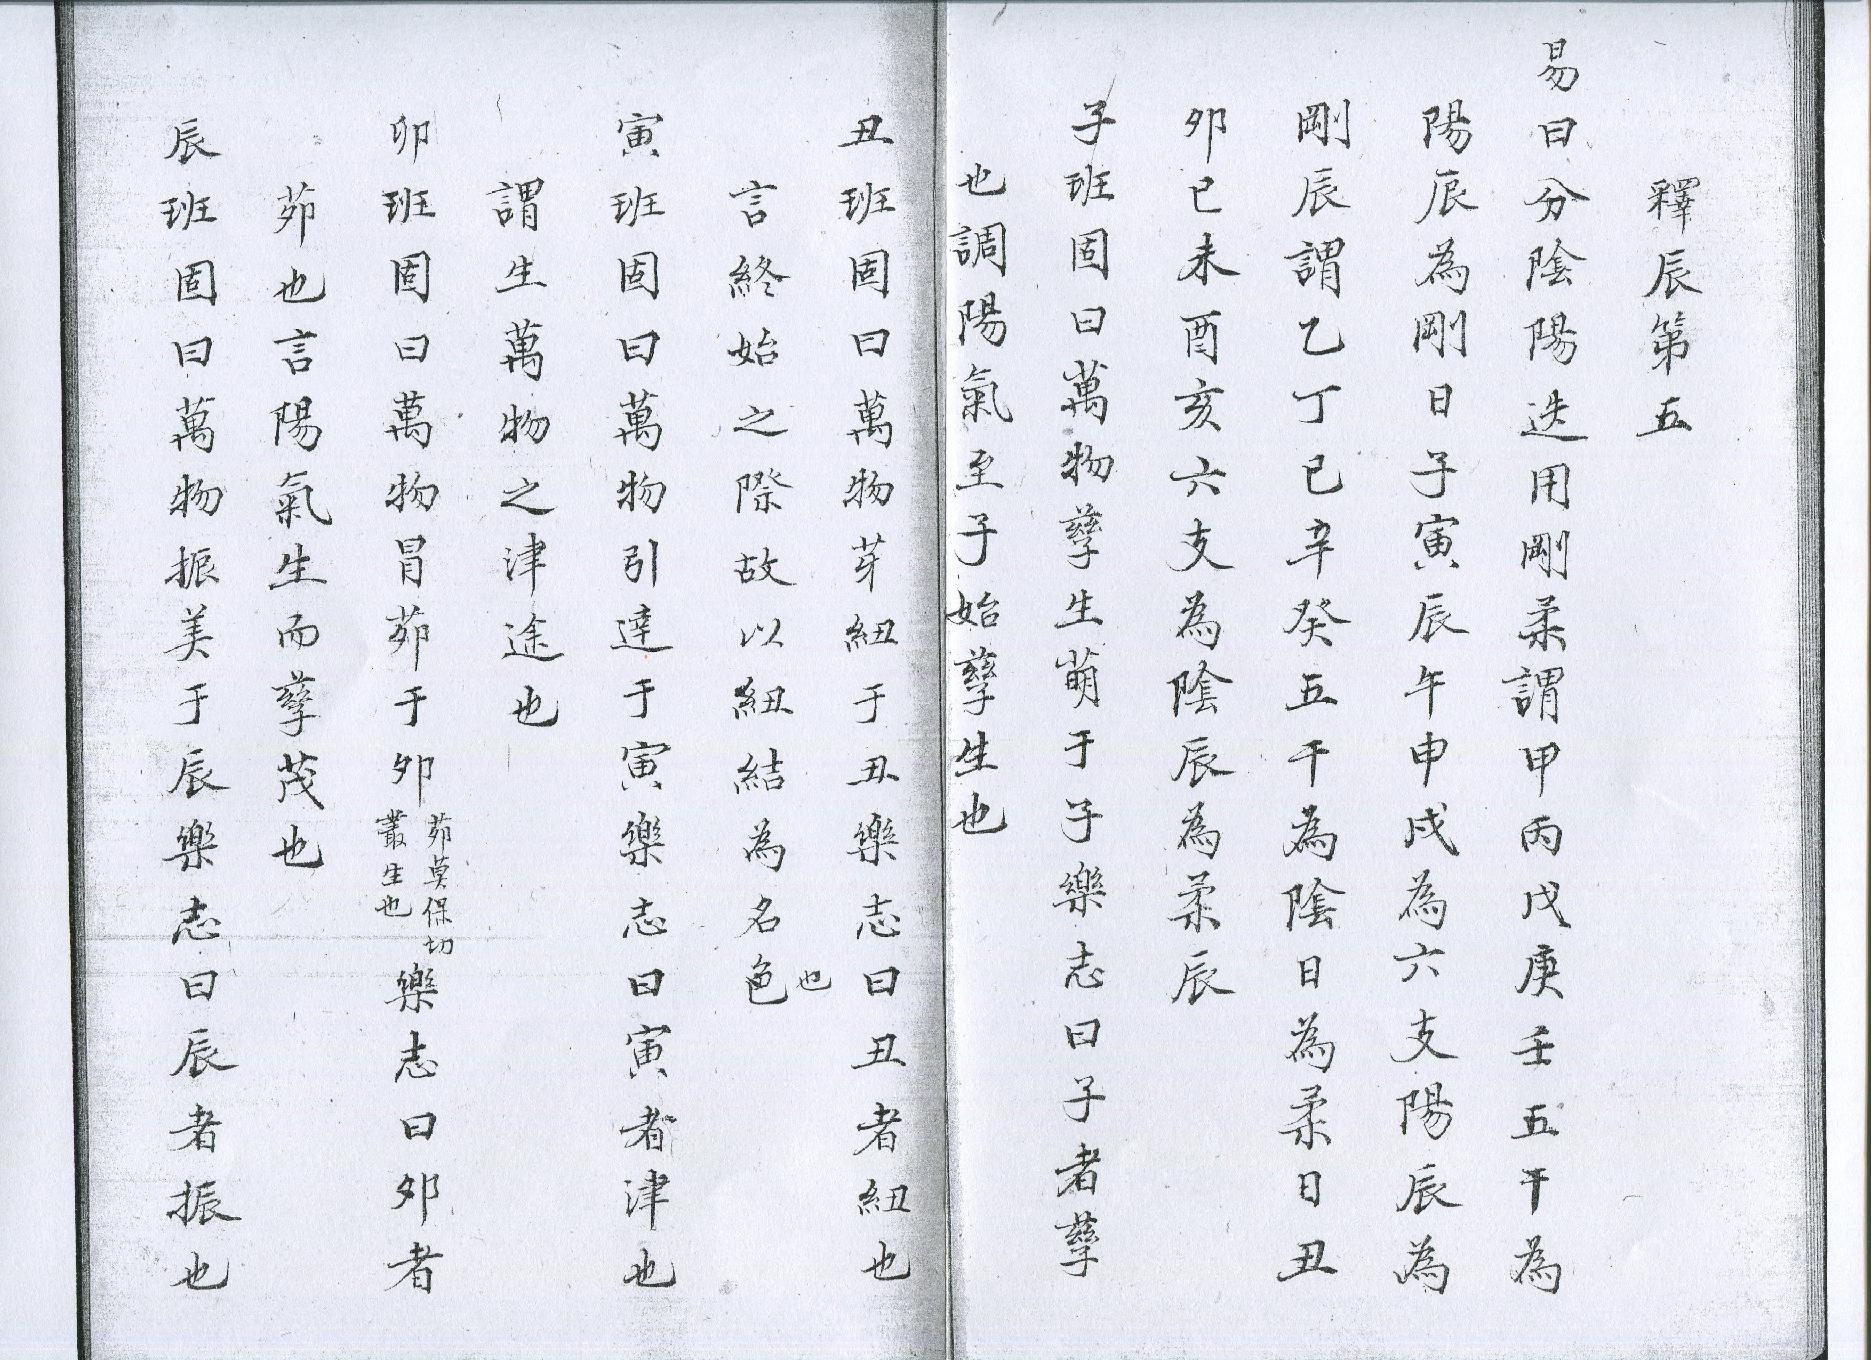 釋辰第五
易曰分陰陽迭用剛柔謂甲丙戊庚壬五干為
陽辰為剛日子寅辰午申戌為六支陽辰為
剛辰謂乙丁已辛癸五干為陰日為柔日丑
夘已未酉亥六支為陰辰為柔辰
子班固曰萬物孳生萌于子樂志曰子者孳
也調陽氣至子始孳生也
丑班固曰萬物芽紐于丑樂志曰丑者紐也
言終始之際故以紐結為名色也
寅班固曰萬物引達于寅樂志曰寅者津也
謂生萬物之津途也
卯班固曰萬物冒茆于夘茆莫保切叢生也樂志曰夘者
茆也言陽氣生而孳茂也
辰班固曰萬物振美于辰樂志曰辰者振也